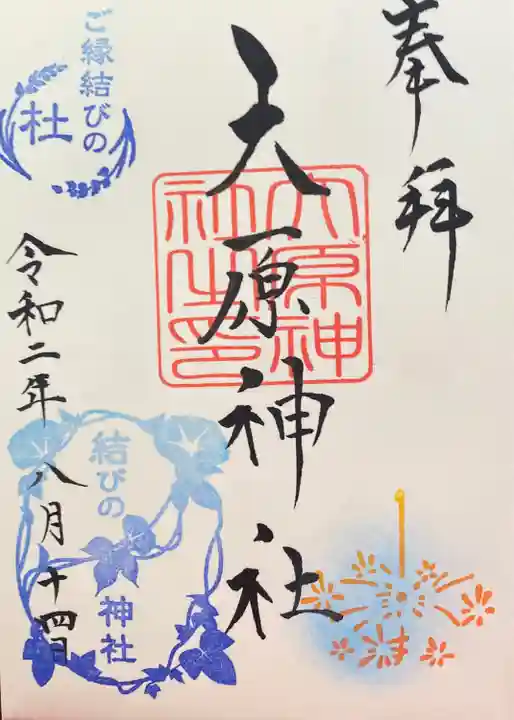 奉拝
大原神社
大原神社之印
ご縁結びの
杜
令和二年八月十四日
結びの
神社